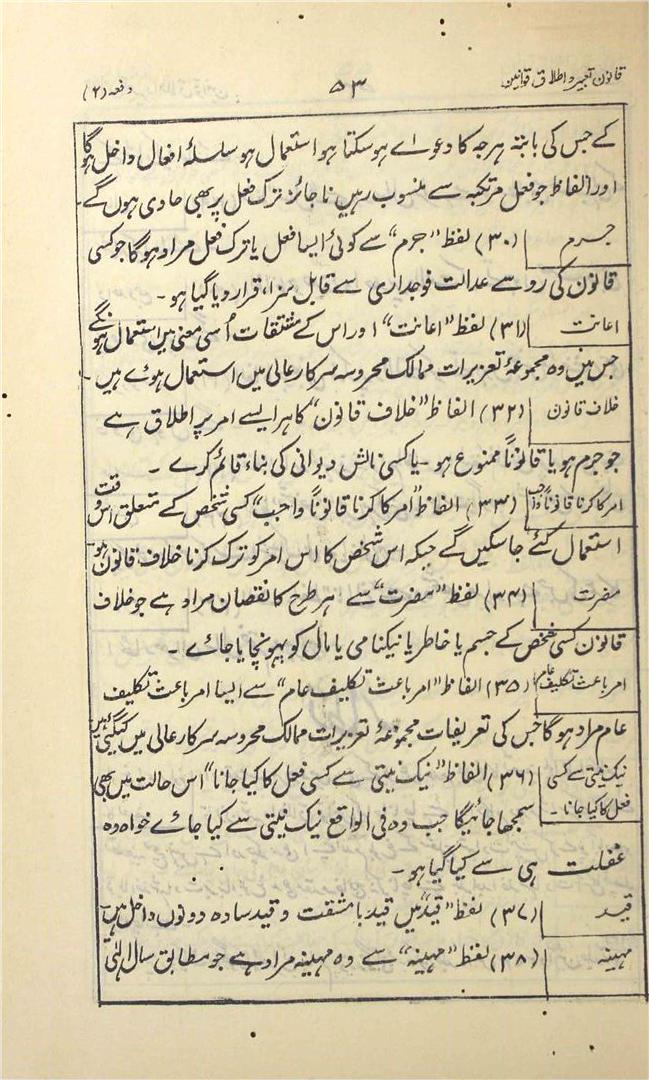 قانون تعبیر و اطلاق قوانین ۵۳ دفعہ (۲)
کے جس کی بابتہ ہرجہ کا دعواے ہو سکتا ہو استعمال ہو سلسلۂ افعال داخل ہوگا
اور الفاظ جو فعل مرتکبہ سے منسوب رہیں ناجائز ترک فعل پر بھی حاوی ہوں گے۔
جرم (۳۰) لفظ "جرم" سے کوئی ایسا فعل یا ترک فعل مراد ہوگا جو کسی
قانون کی رو سے عدالت فوجداری سے قابل سزا، قرار دیا گیا ہو۔
اعانت (۳۱) لفظ "اعانت" اور اس کے مشتقات اُسی معنی میں استعمال ہونگے
جس میں وہ مجموعۂ تعزیرات ممالک محروسہ سرکار عالی میں استعمال ہوے ہیں۔
خلاف قانون (۳۲) الفاظ "خلاف قانون" کا ہر ایسے امر پر اطلاق ہے
جو جرم ہو یا قانوناً ممنوع ہو۔ یا کسی نالش دیوانی کی بناء قائم کرے۔
امر کا کرنا قانوناً واجب (۳۳) الفاظ "امر کا کرنا قانوناً واجب" کسی شخص کے متعلق اس وقت
استعمال کئے جا سکیں گے جبکہ اس شخص کا اس امر کو ترک کرنا خلاف قانون ہو۔
مضرت (۳۴) لفظ "مضرت" سے ہر طرح کا نقصان مراد ہے جو خلاف
قانون کسی شخص کے جسم یا خاطر یا نیکنامی یا مال کو پہونچایا جائے۔
امر باعث تکلیف عام (۳۵) الفاظ "امر باعث تکلیف عام" سے ایسا امر باعث تکلیف
عام مراد ہوگا جس کی تعریفات مجموعۂ تعزیرات ممالک محروسہ سرکار عالی میں کیگئی ہیں
نیک نیتی سے کسی (۳۶) الفاظ "نیک نیتی سے کسی فعل کا کیا جانا" اس حالت میں بھی
فعل کا کیا جانا۔ سمجھا جائیگا جب وہ فی الواقع نیک نیتی سے کیا جائے خواہ وہ
غفلت ہی سے کیا گیا ہو۔
قید (۳۷) لفظ "قید" میں قید با مشقت و قید سادہ دونوں داخل ہیں
مہینہ (۳۸) لفظ "مہینہ" سے وہ مہینہ مراد ہے جو مطابق سال الٰہی